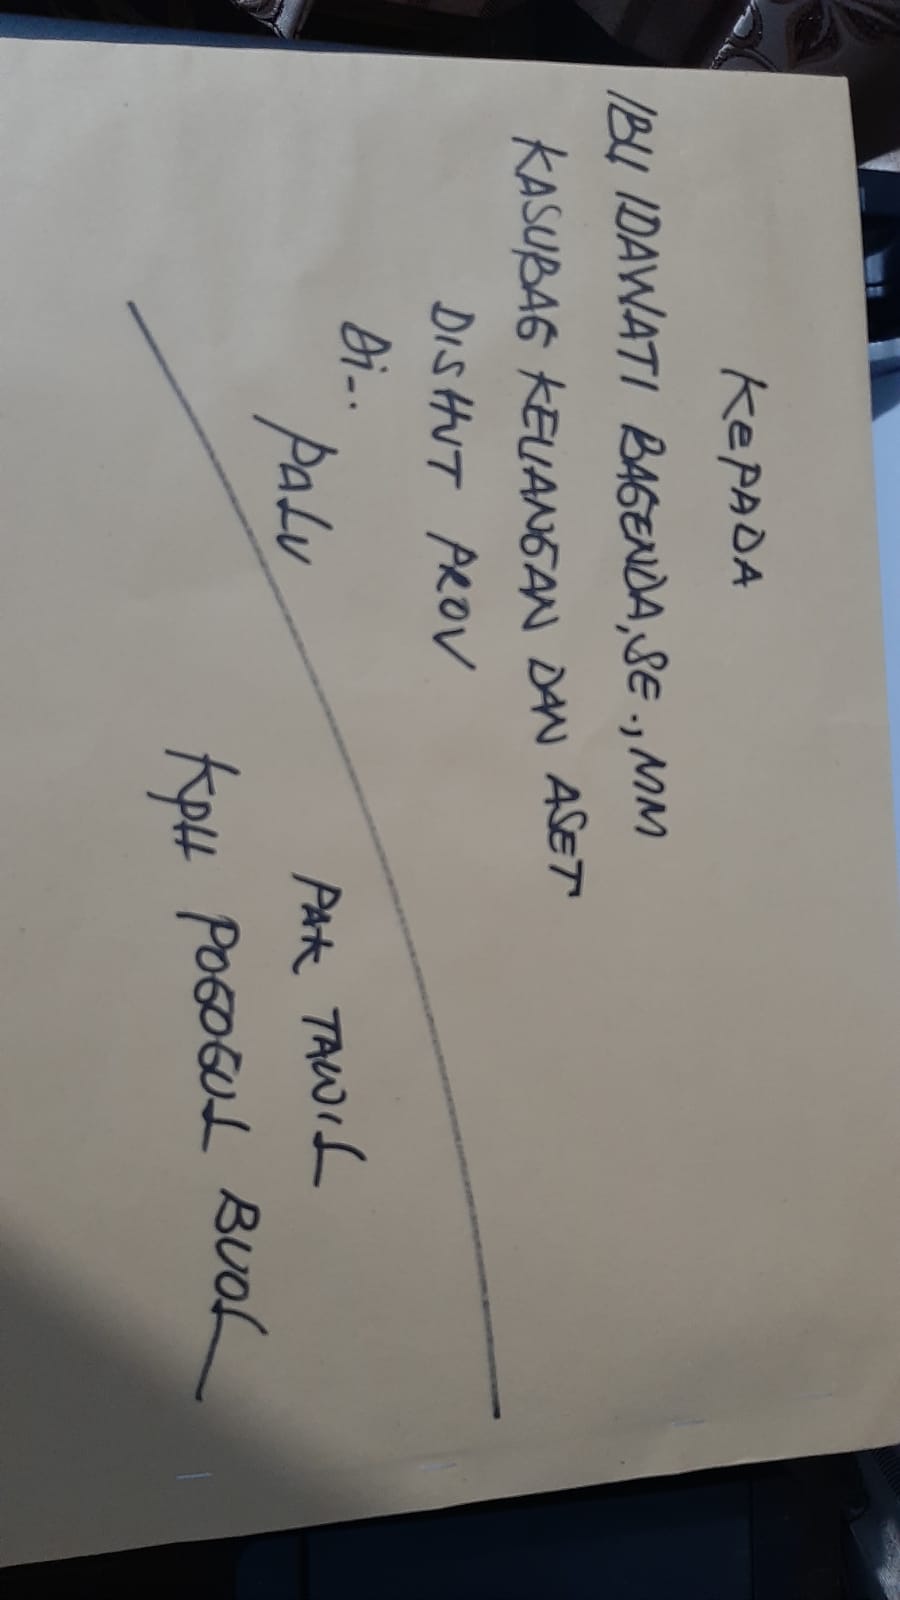 KEPADA
IBU IDAWATI BAGENDA, SE., MM
KASUBAG KEUANGAN DAN ASET
DISHUT PROV
Di..
PALU
PAK TAWIL
KPH POGOGUL BUOL